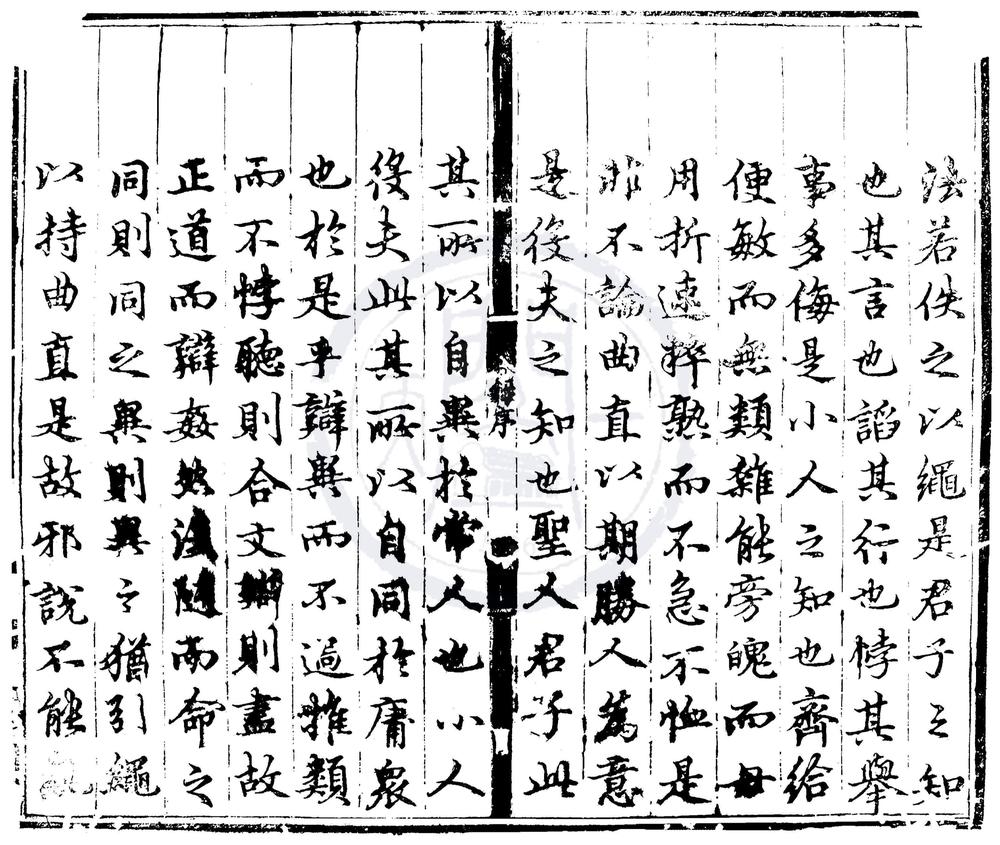 法若佚之以繩是君子之知
也其言也謟其行也悖其舉
事多侮是小人之知也齊給
便敏而無類雜能旁魄而毋
用折速粹熟而不急不恤是
非不論曲直以期勝人為意
是役夫之知也聖人君子此
序
其所以自異於常人也小人
役夫此其所以自同於庸眾
也於是乎辯異而不過推類
而不悖聽則合文辯則盡故
正道而辯姦然法隨而命之
同則同之異則異之猶引繩
以持曲直是故邪說不能